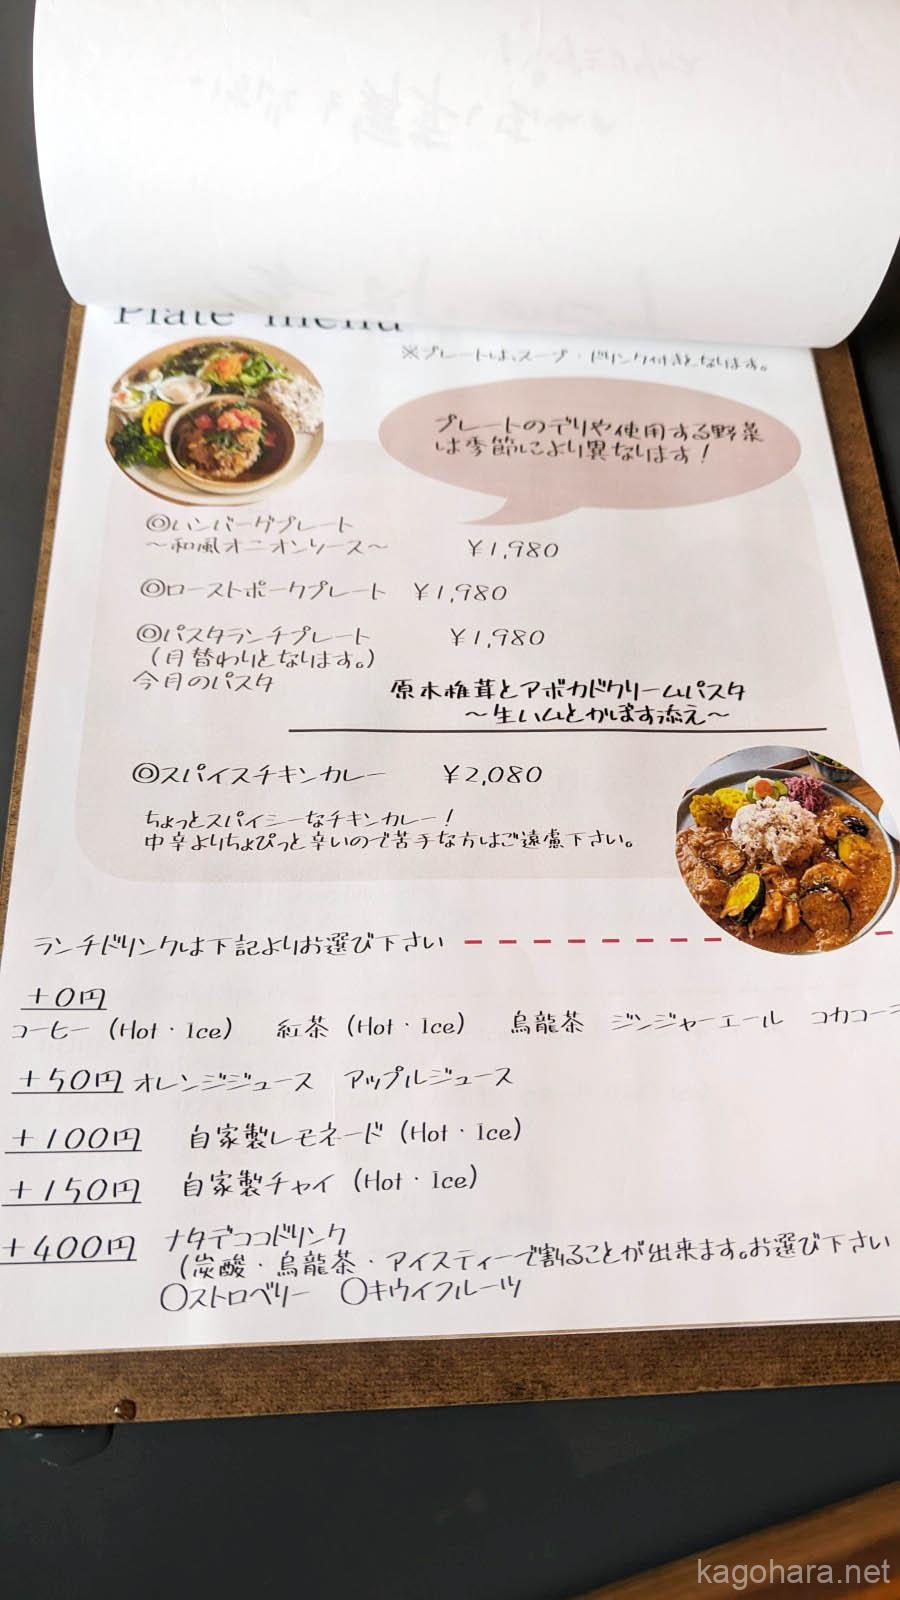 Plate menu
※プレートは、スープ・ドリンク付きとなります。
プレートのデリや使用する野菜
は季節により異なります！
◎ハンバーグプレート
～和風オニオンソース～ ¥1,980
◎ローストポークプレート ¥1,980
◎パスタランチプレート ¥1,980
（月替わりとなります。）
今月のパスタ
原木椎茸とアボカドクリームパスタ
～生ハムとかぼす添え～
◎スパイスチキンカレー ¥2,080
ちょっとスパイシーなチキンカレー！
中辛よりちょぴっと辛いので苦手な方はご遠慮下さい。
ランチドリンクは下記よりお選び下さい
+0円
コーヒー（Hot・Ice） 紅茶（Hot・Ice） 烏龍茶 ジンジャーエール コカコーラ
+50円 オレンジジュース アップルジュース
+100円 自家製レモネード（Hot・Ice）
+150円 自家製チャイ（Hot・Ice）
+400円 ナタデココドリンク
（炭酸・烏龍茶・アイスティーで割ることが出来ます。お選び下さい
○ストロベリー ○キウイフルーツ
kagohara.net